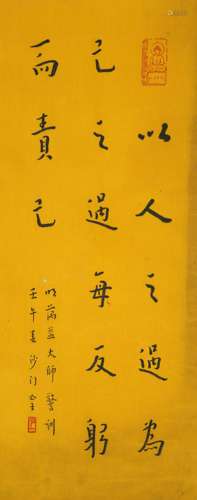 以人之過為
己之過每反躬
而責己
明蕅益大師警訓
壬午夏沙門